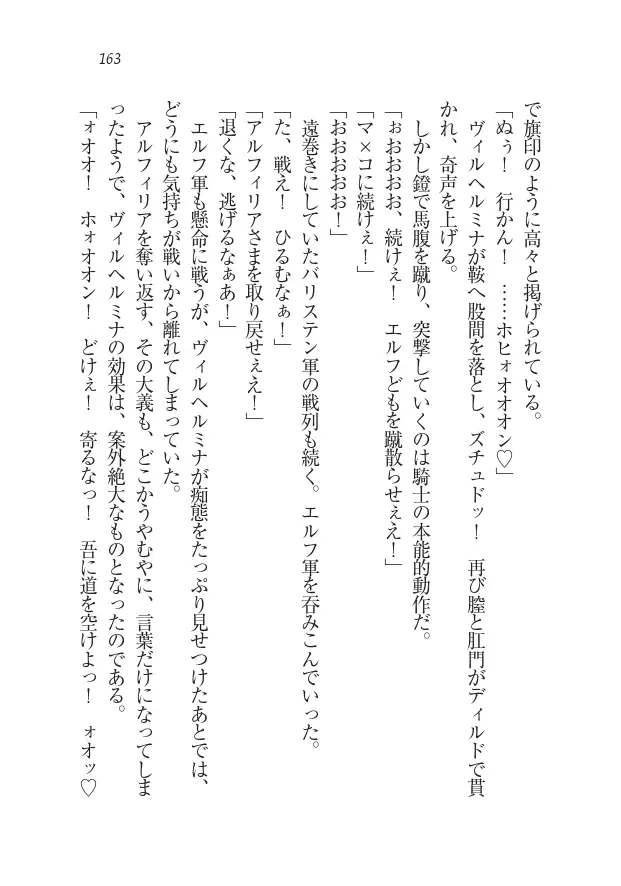 163
で旗印のように高々と掲げられている。
「ぬぅ！　行かん！　……ホヒォオオオン♡」
　ヴィルヘルミナが鞍へ股間を落とし、ズチュドッ！　再び膣と肛門がディルドで貫
かれ、奇声を上げる。
　しかし鐙で馬腹を蹴り、突撃していくのは騎士の本能的動作だ。
「ぉおおおお、続けぇ！　エルフどもを蹴散らせぇえ！」
「マ×コに続けぇ！」
「おおおおお！」
　遠巻きにしていたバリステン軍の戦列も続く。エルフ軍を呑みこんでいった。
「た、戦え！　ひるむなぁ！」
「アルフィリアさまを取り戻せぇえ！」
「退くな、逃げるなぁあ！」
　エルフ軍も懸命に戦うが、ヴィルヘルミナが痴態をたっぷり見せつけたあとでは、
どうにも気持ちが戦いから離れてしまっていた。
　アルフィリアを奪い返す、その大義も、どこかうやむやに、言葉だけになってしま
ったようで、ヴィルヘルミナの効果は、案外絶大なものとなったのである。
「ォオオ！　ホォオオン！　どけぇ！　寄るなっ！　吾に道を空けよっ！　ォオッ♡